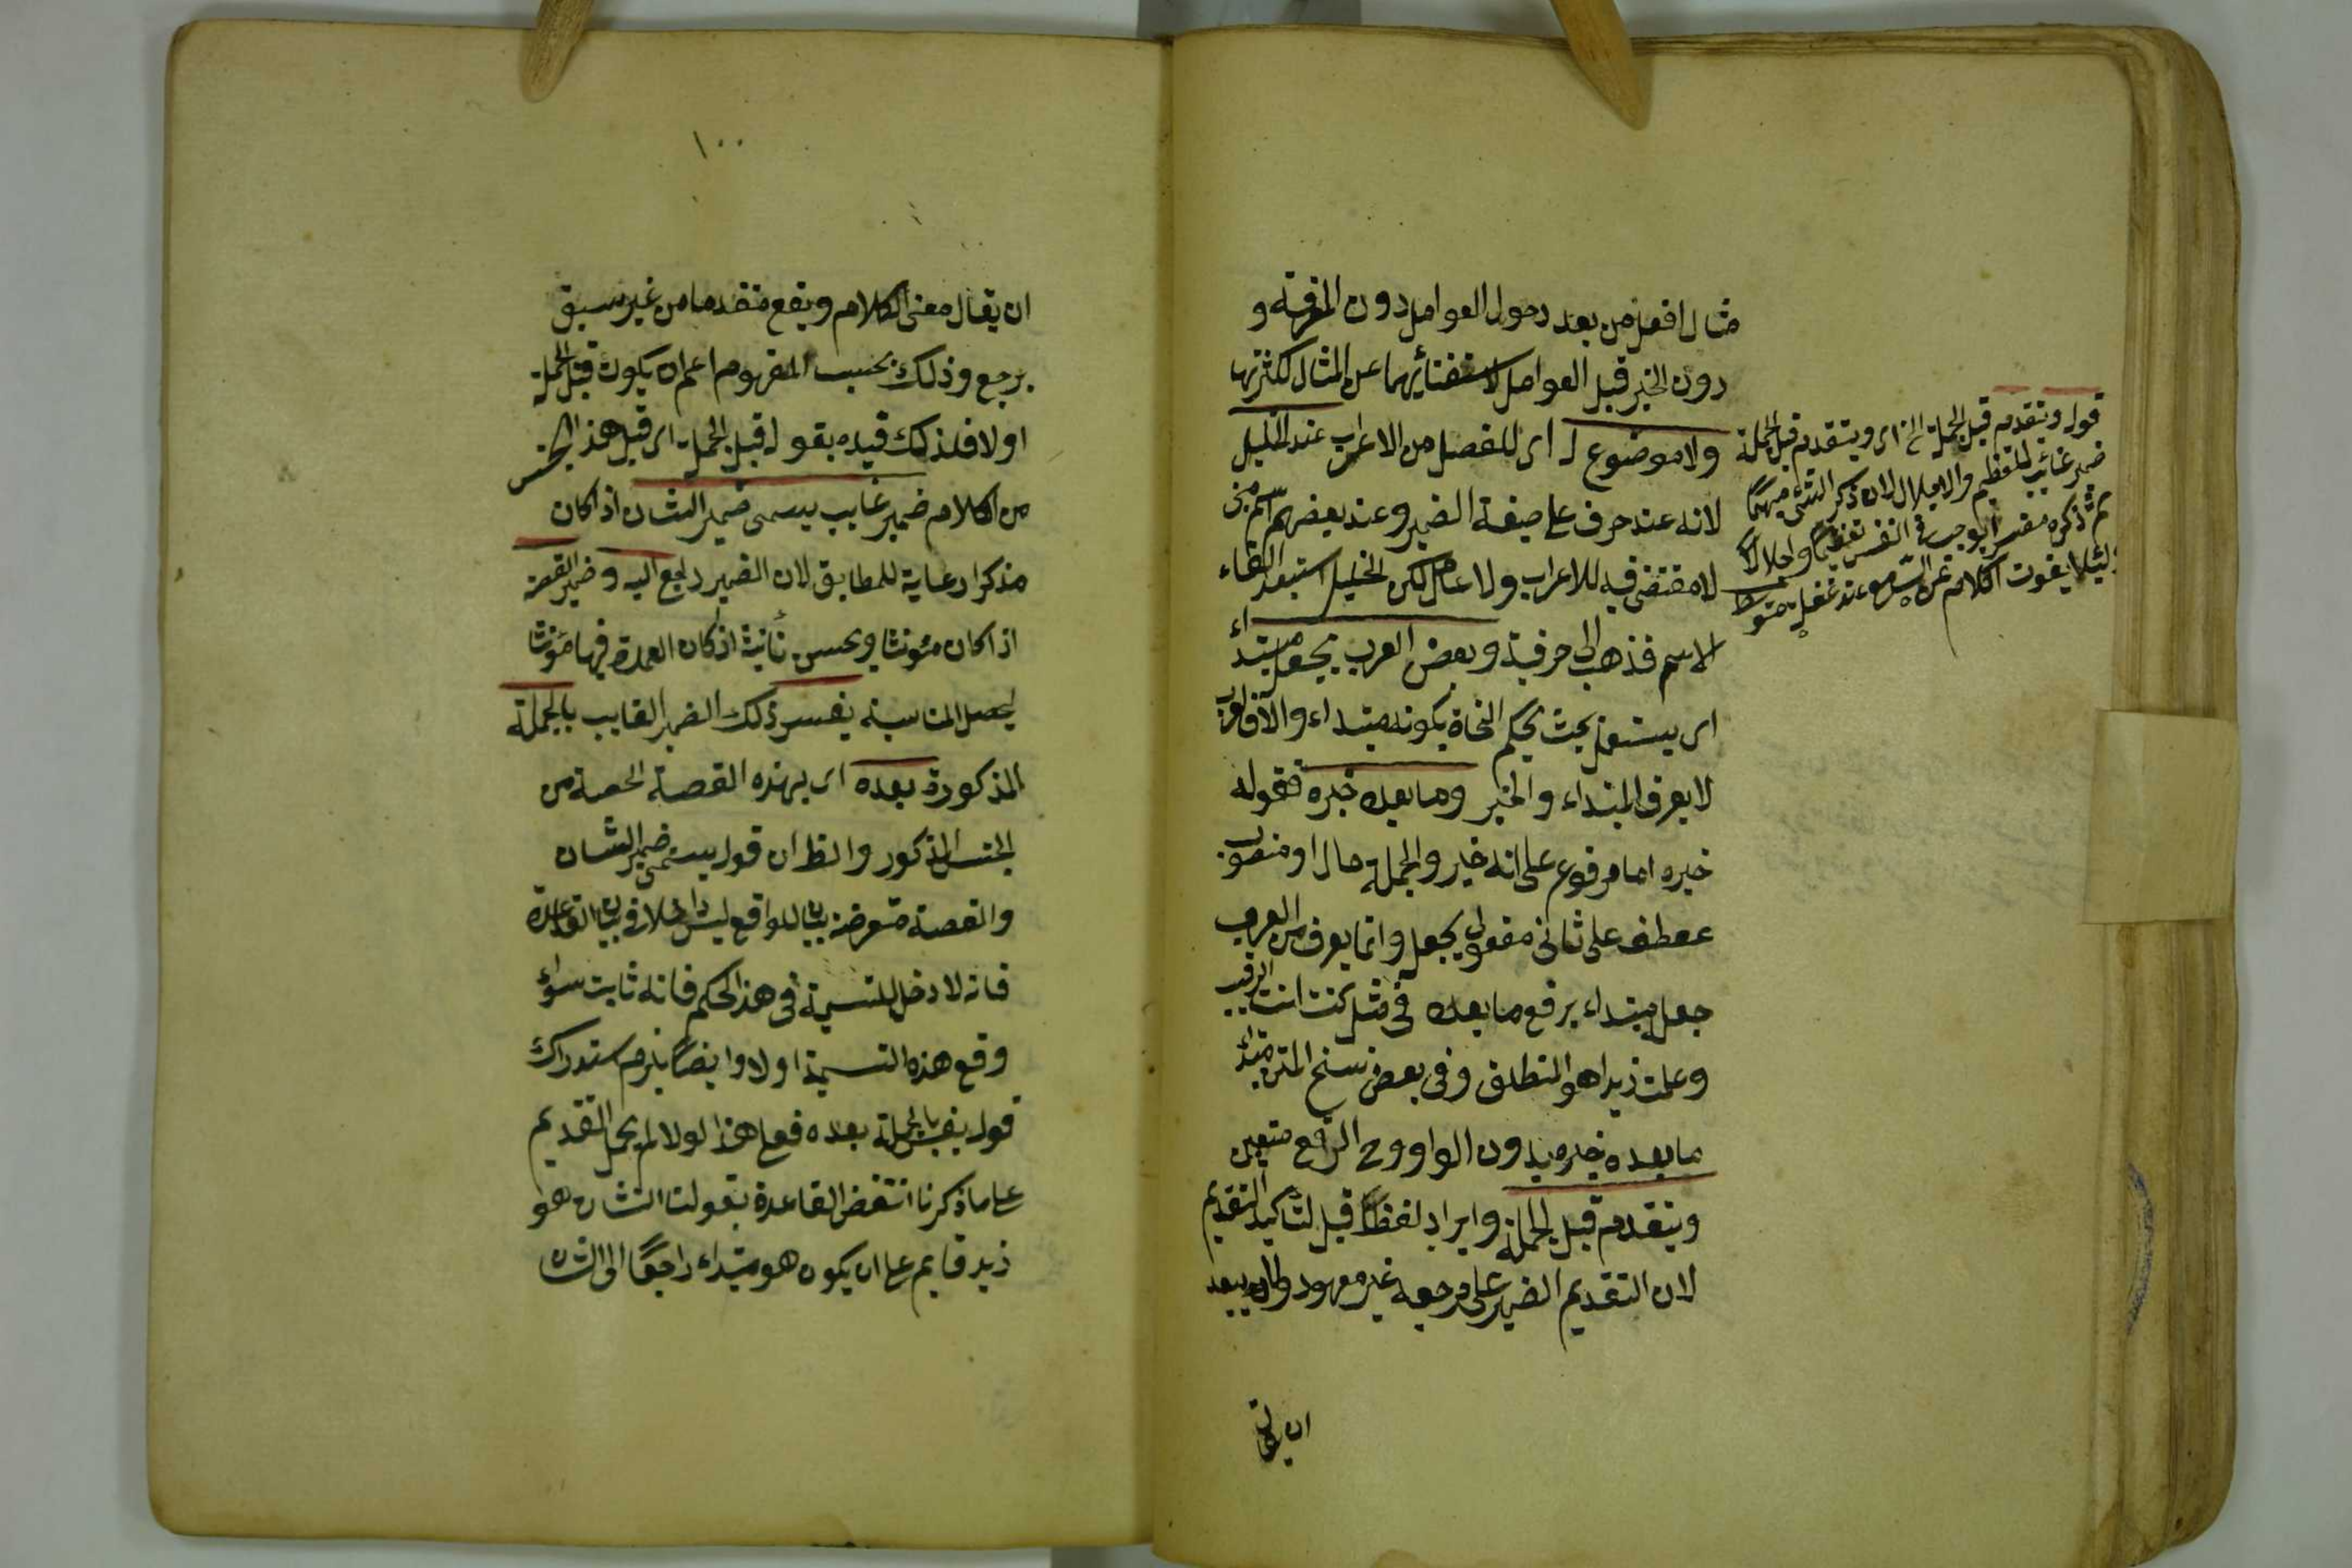 مثال افعل من بعد دخول العوامل دون المعرفة و
دون الخبر قبل العوامل لاستغنائهما عن المثال لكثرتها
ولا موضع له اى للفصل من الاعراب عند الخليل
لانه عنده حرف على صيغة الضمير وعند بعضهم اسم مبنى
لا مقتضى فيه للاعراب ولا عامل لكن الخليل استبعد الغاء
الاسم فذهب الى حرفيته وبعض العرب يجعله مبتداء
اى يستعمل بحيث يحكم النحاة بكونه مبتداء والا فالعرب
لا يعرف المبتداء والخبر وما بعده خبره فقوله
خبره اما مرفوع على انه خبر والجملة حال او منصوب
عطف على ثانى مفعولى يجعل وانما يعرف من العرب
جعله مبتداء برفع ما بعده فى مثل كنت انت الرقيب
وعلمت زيدا هو المنطلق وفى بعض نسخ المتن مبتداء
ما بعده خبره بدون الواو وح الرفع متعين
ويتقدم قبل الجملة وايراد لفظ قبل لتأكيد التقديم
لان التقديم الضمير على مرجعه غير معهود ولانه يبعد
ان يقال
قوله وتقدم قبل الجملة الخ اى ويتقدم قبل الجملة
ضمير غائب للتعظيم والاجلال لان ذكر الشئ مبهما
ثم ذكره مفسرا يوجب فى النفس تعظيما واجلالا
لئلا يفوت الكلام عن السامع عند غفلة متوسط
١٠٠
ان يقال معنى الكلام ويقع متقدما من غير سبق
مرجع وذلك بحسب المفهوم اعم ان يكون قبل الجملة
او لا فلذلك قيده بقوله قبل الجملة اى قبل هذا الجنس
من الكلام ضمير غايب يسمى ضمير الشان اذا كان
مذكرا رعاية للمطابق لان الضمير راجع اليه وضمير القصة
اذا كان مؤنثا ويحسن تأنيثه اذ كان العمدة فيها مؤنثا
ليحصل المناسبة يفسر ذلك الضمير الغايب بالجملة
المذكورة بعده اى بهذه القصة الحصة من
الجنس المذكور والظ ان قوله يسمى ضمير الشان
والقصة متعرضة بيان للواقع ليس داخلا فى بيان القاعدة
فانه لا دخل للتسمية فى هذا الحكم فانه ثابت سواء
وقع هذه التسمية او لا وايضا يلزم استدراك
قوله يفسر بالجملة بعده فعلى هذا لو لا لم يحمل التقديم
على ما ذكرنا انتقض القاعدة بقولنا الشان هو
زيد قايم على ان يكون هو مبتداء راجعا الى الشان